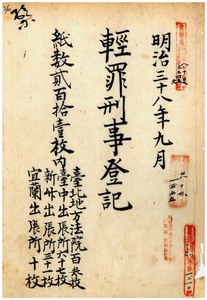 明治三十八年九月
輕罪刑事登記
紙数貳百拾壹枚内
臺北地方法院百參枚
臺中出張所六十七枚
新竹出張所三十一枚
宜蘭出張所十枚